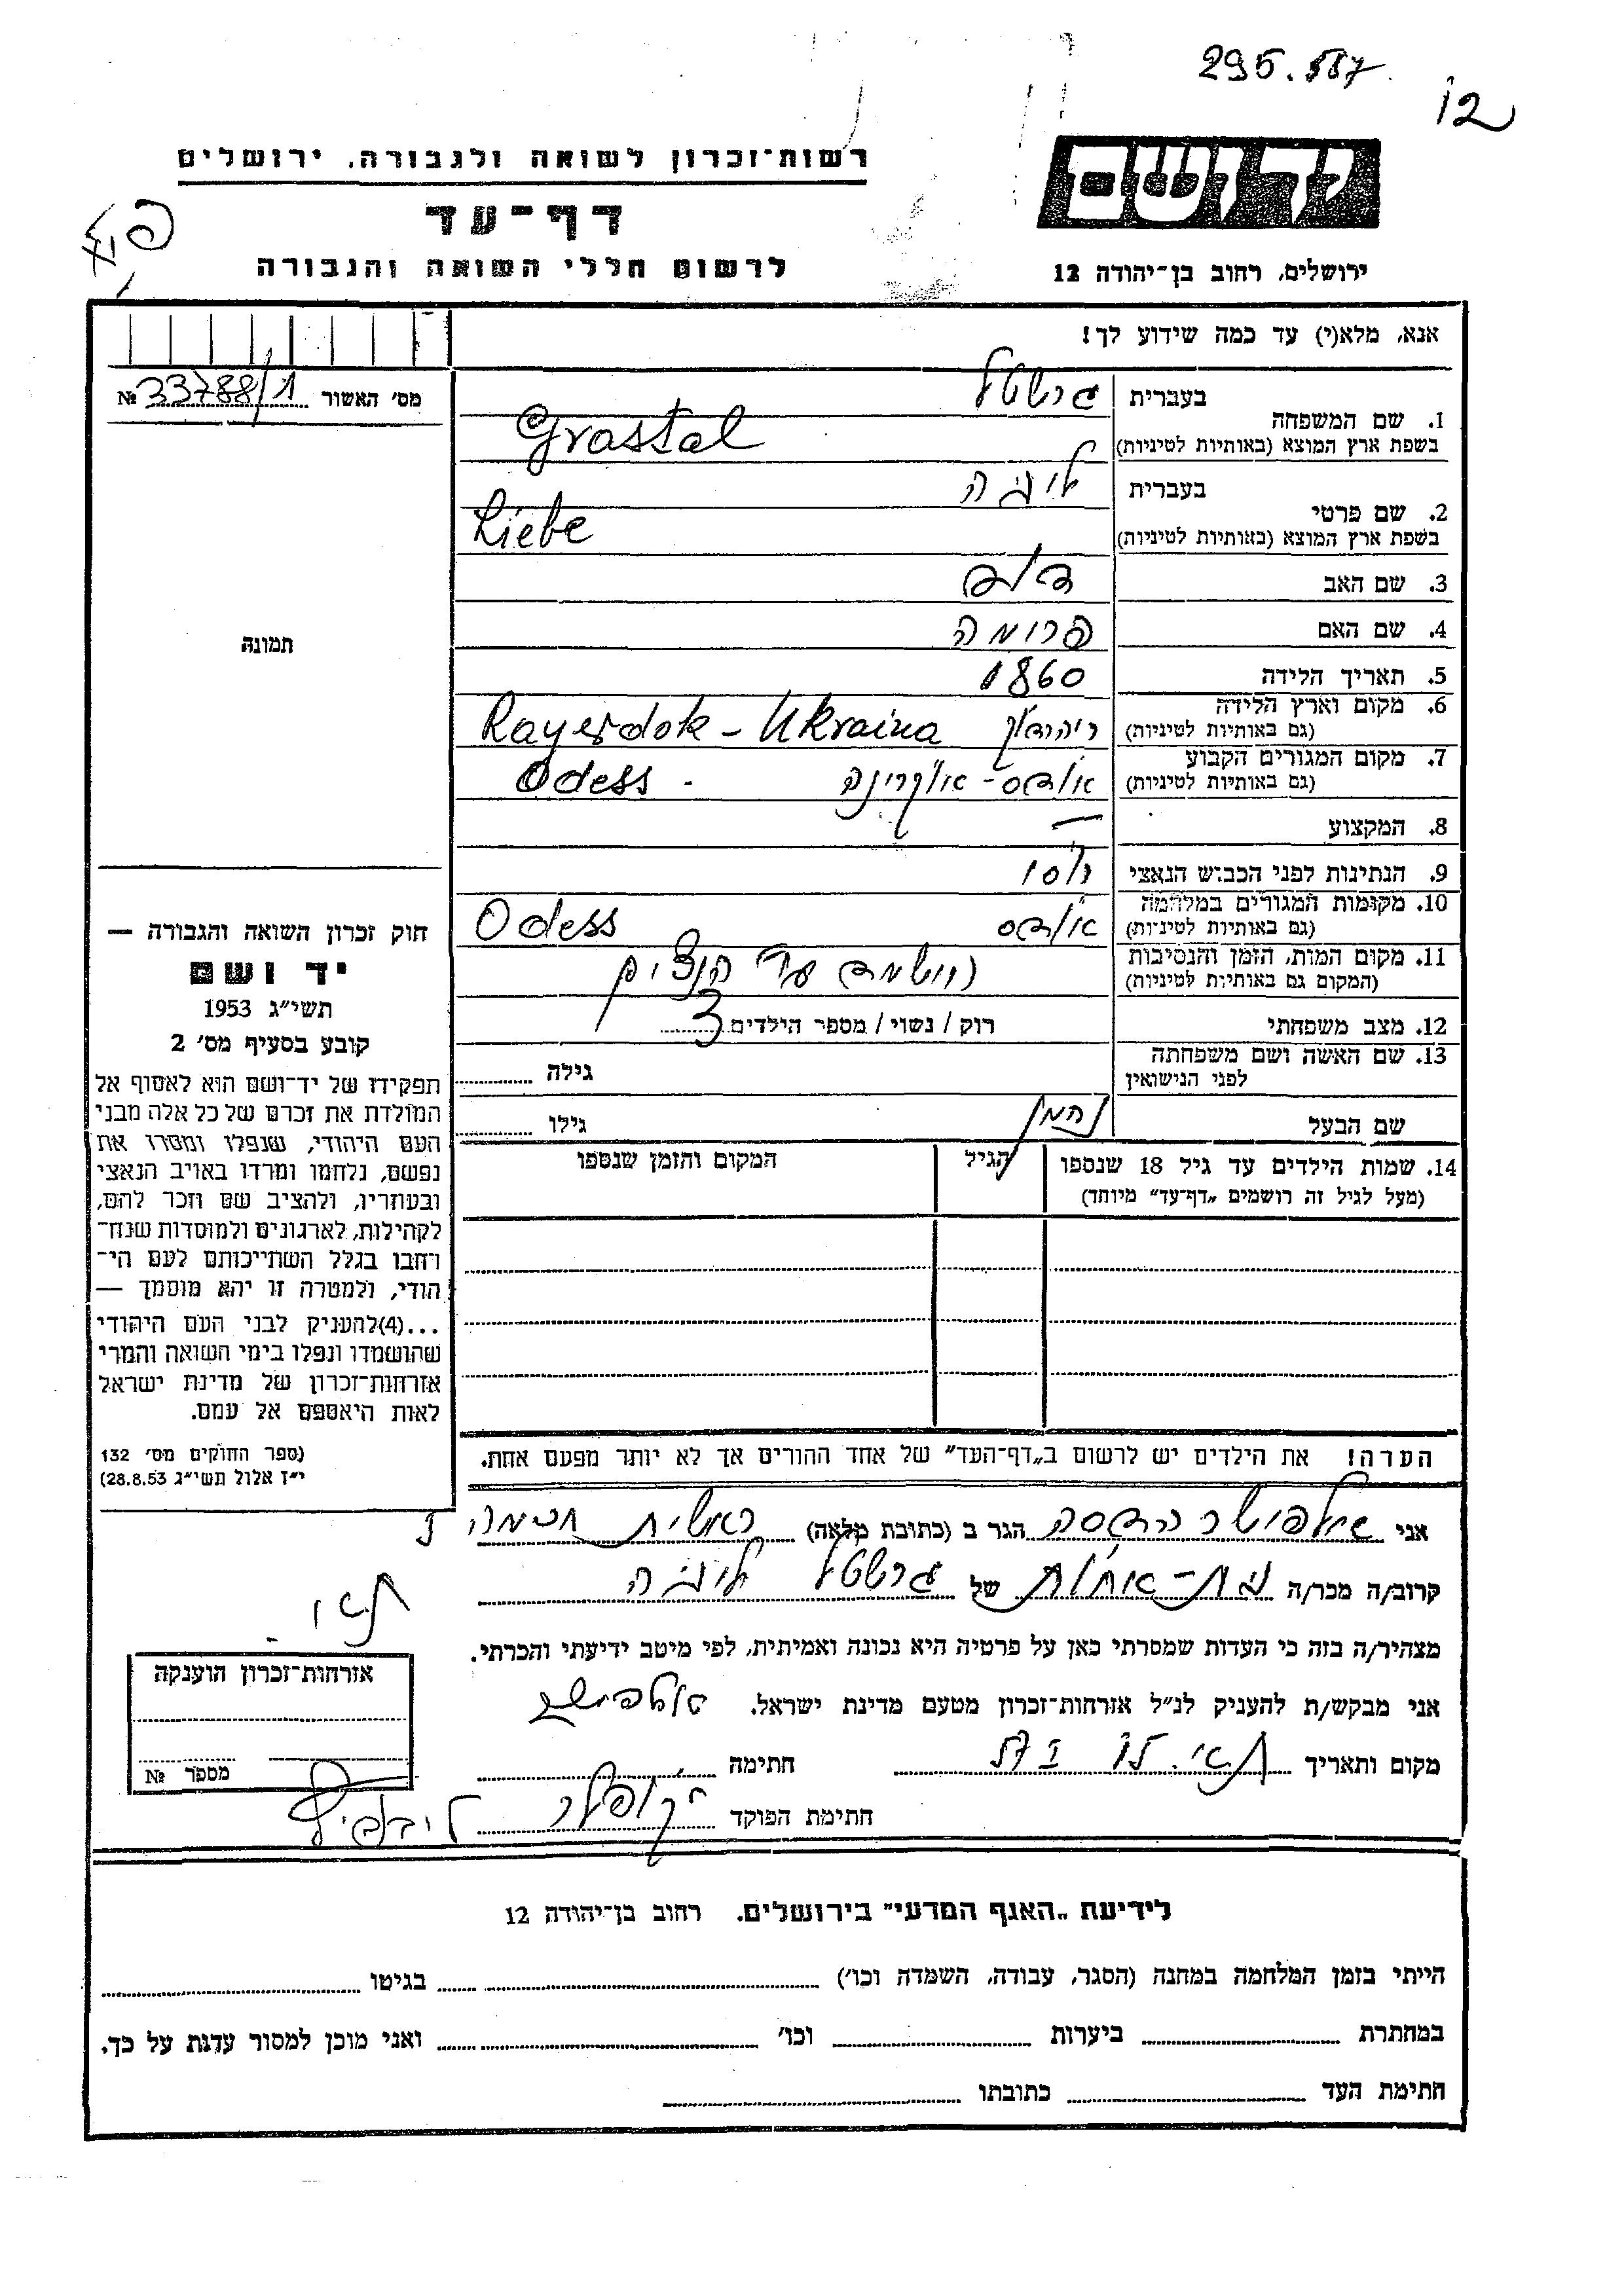 295.557
12
רשות־זכרון לשואה ולגבורה, ירושלים
יד ושם
דף־עד
לרשום חללי השואה והגבורה
ירושלים, רחוב בן־יהודה 12
אנא, מלא(י) עד כמה שידוע לך!
מס׳ האשור № 33788/1
1. שם המשפחה בעברית גרשטל
בשפת ארץ המוצא (באותיות לטיניות) Grastal
2. שם פרטי בעברית ליבה
בשפת ארץ המוצא (באותיות לטיניות) Liebe
3. שם האב חיים
4. שם האם פרומה
תמונה
5. תאריך הלידה 1860
6. מקום וארץ הלידה
(גם באותיות לטיניות) Rayerdok - Ukraina
7. מקום המגורים הקבוע
(גם באותיות לטיניות) אודס - אוקרינה Odess
8. המקצוע —
9. הנתינות לפני הכבוש הנאצי
10. מקומות המגורים במלחמה
(גם באותיות לטיניות) אודס Odess
11. מקום המות, הזמן והנסיבות
(המקום גם באותיות לטיניות) הושמדה ע״י הנצים
12. מצב משפחתי רוק / נשוי / מספר הילדים 3
13. שם האשה ושם משפחתה
לפני הנישואין גילה
שם הבעל נחמן גילו
14. שמות הילדים עד גיל 18 שנספו הגיל המקום והזמן שנספו
(מעל לגיל זה רושמים „דף־עד״ מיוחד)
חוק זכרון השואה והגבורה —
יד ושם
תשי״ג 1953
קובע בסעיף מס׳ 2
תפקידו של יד־ושם הוא לאסוף אל
המולדת את זכרם של כל אלה מבני
העם היהודי, שנפלו ומסרו את
נפשם, נלחמו ומרדו באויב הנאצי
ובעוזריו, ולהציב שם וזכר להם,
לקהילות, לארגונים ולמוסדות שנח־
רבו בגלל השתייכותם לעם הי־
הודי, ולמטרה זו יהא מוסמך —
...(4) להעניק לבני העם היהודי
שהושמדו ונפלו בימי השואה והמרי
אזרחות־זכרון של מדינת ישראל
לאות היאספם אל עמם.
(ספר החוקים מס׳ 132
י״ז אלול תשי״ג 28.8.53)
הערה! את הילדים יש לרשום ב„דף־העד״ של אחד ההורים אך לא יותר מפעם אחת.
אני הדסה הגר ב (כתובת מלאה) ראשית חכמה 7
קרוב/ה מכר/ה בת-אחות של גרשטל ליבה
מצהיר/ה בזה כי העדות שמסרתי כאן על פרטיה היא נכונה ואמיתית, לפי מיטב ידיעתי והכרתי.
אני מבקש/ת להעניק לנ״ל אזרחות־זכרון מטעם מדינת ישראל.
מקום ותאריך חתימה
חתימת הפוקד
אזרחות־זכרון הוענקה
מספר №
לידיעת „האגף המדעי״ בירושלים. רחוב בן־יהודה 12
הייתי בזמן המלחמה במחנה (הסגר, עבודה, השמדה וכו׳) בגיטו
במחתרת ביערות וכו׳ ואני מוכן למסור עדות על כך.
חתימת העד כתובתו